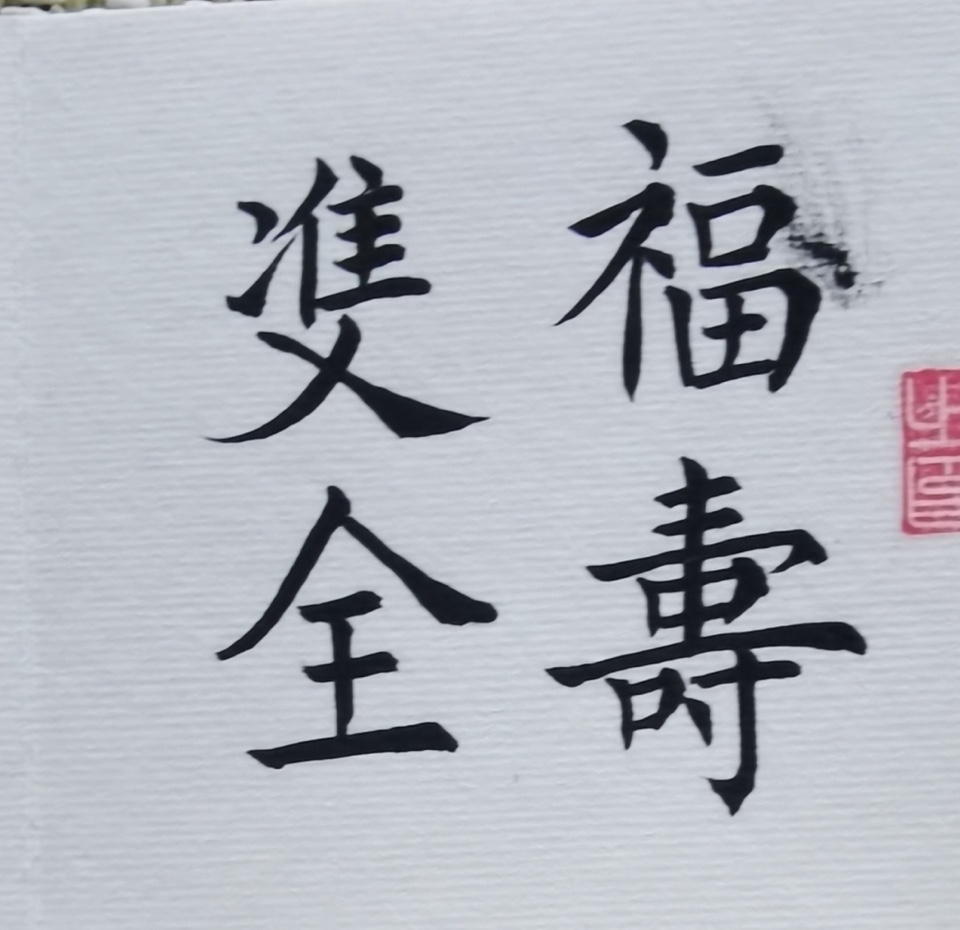 福壽
雙全